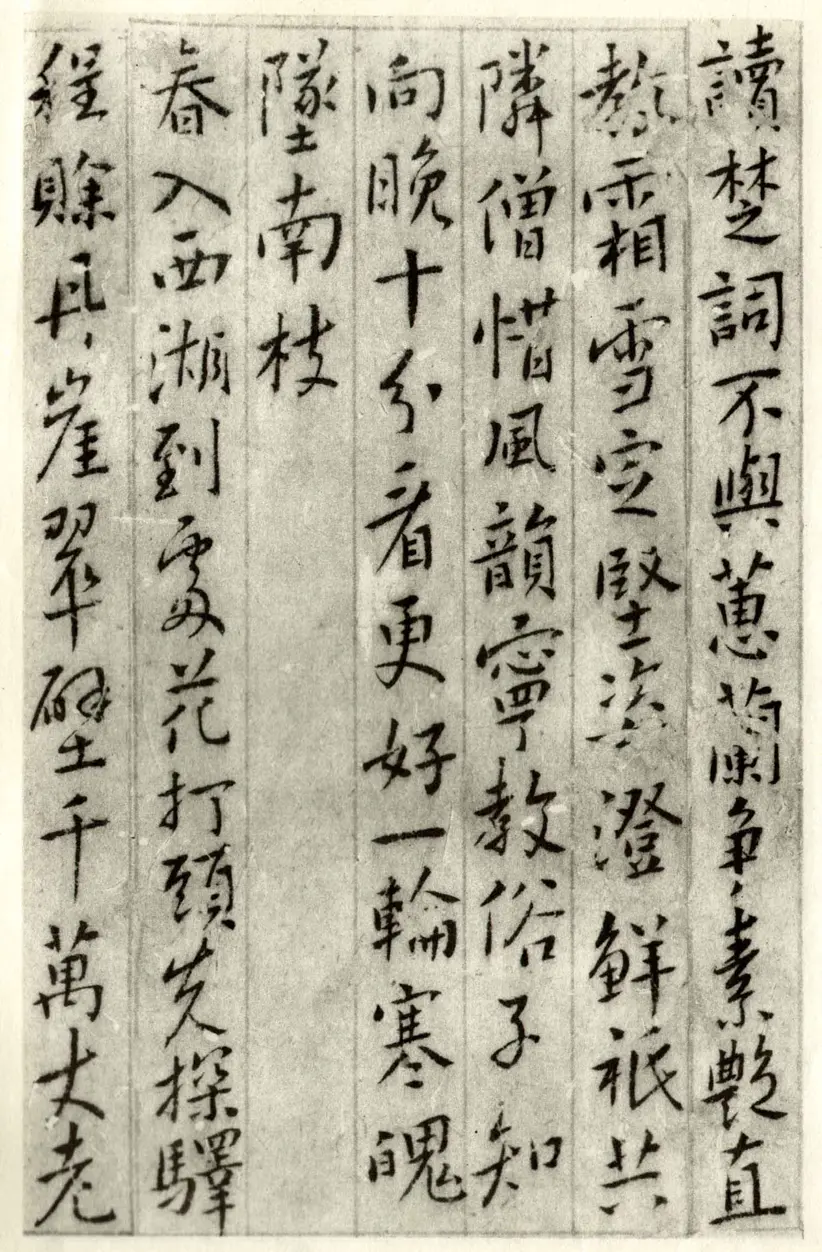 讀楚詞不與蕙蘭爭素艷直
教霜雪定堅姿澄鮮祇共
隣僧惜風韻寧教俗子知
向晚十分看更好一輪寒魄
墜南枝
春入西湖到處花打頭先探驛
程賖具崖翠壁千萬丈老